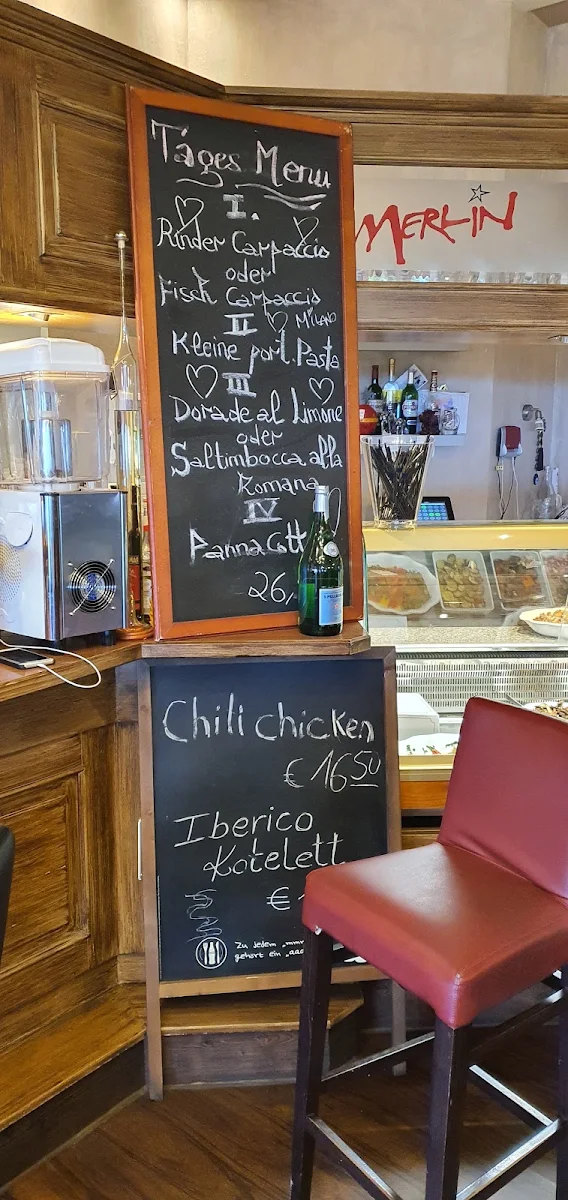 Tages Menu
I.
Rinder Carpaccio
oder
Fisch Carpaccio
II MILANO
Kleine port. Pasta
III
Dorade al Limone
oder
Saltimbocca alla
Romana
IV
Panna Cott
26,
MERLIN
Chili chicken
€ 16 50
Iberico
Kotelett
€
Zu jedem „mmm
gehört ein „aaa